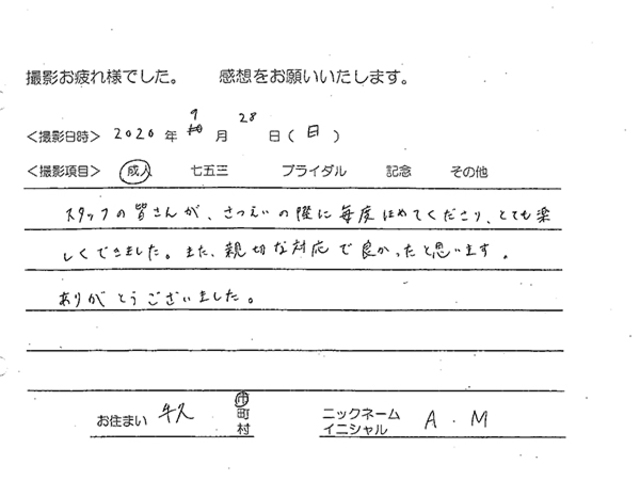 撮影お疲れ様でした。 感想をお願いいたします。
<撮影日時> 2020 年 9 月 28 日 ( 日 )
<撮影項目> 成人 七五三 ブライダル 記念 その他
スタッフの皆さんが、さつえいの際に毎度ほめてくださり、とても楽
しくできました。また、親切な対応で良かったと思います。
ありがとうございました。
お住まい 牛久 市 町 村 ニックネーム イニシャル A . M